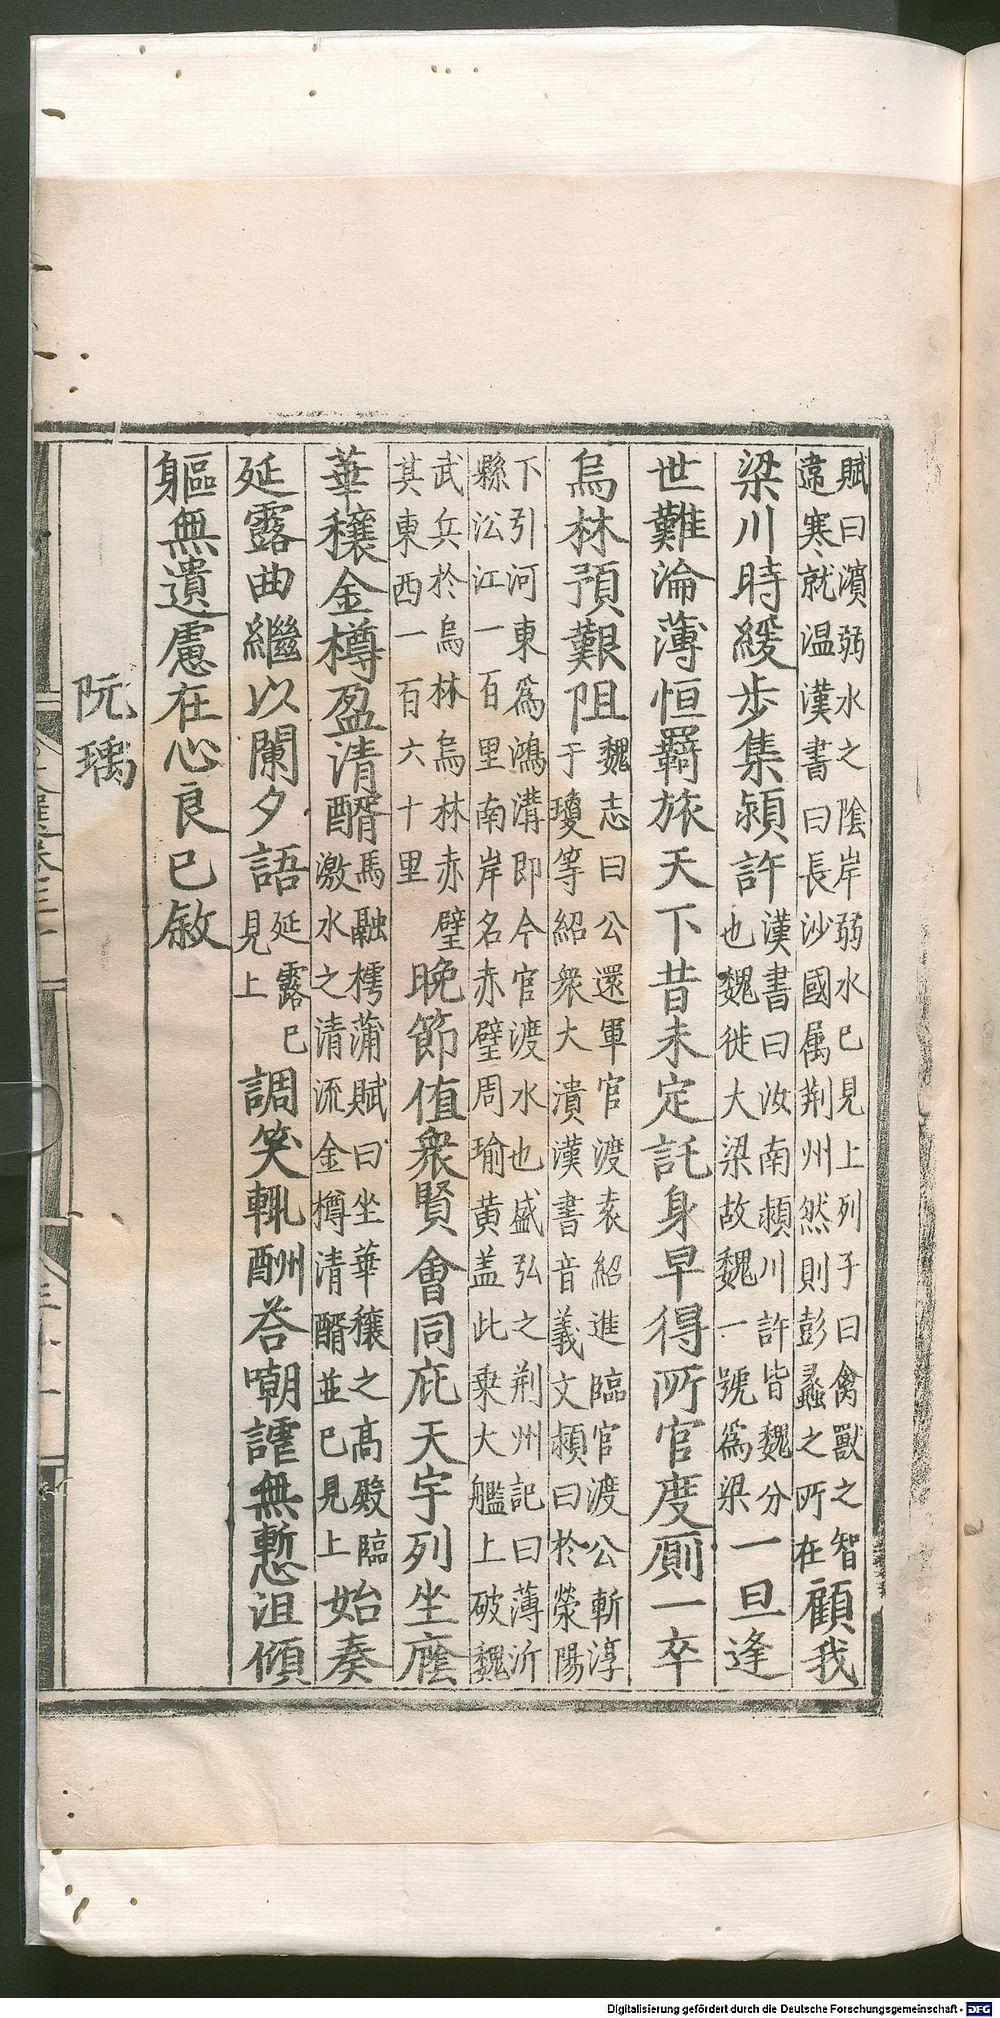 賦曰濱弱水之隂岸弱水巳見上列子曰禽獸之智
違寒就温漢書曰長沙國属荆州然則彭蠡之所在
顧我
梁川時緩步集潁許
漢書曰汝南潁川許皆魏分
也魏徙大梁故魏一號爲梁
一旦逢
世難淪薄恒羇旅天下昔未定託身早得所官度厠一卒
烏林預艱阻
魏志曰公還軍官渡袁紹進臨官渡公斬淳
于瓊等紹衆大潰漢書音義文潁曰於滎陽
下引河東爲鴻溝即今官渡水也盛弘之荆州記曰薄沂
縣㳂江一百里南岸名赤壁周瑜黄盖此乗大艦上破魏
武兵於烏林烏林赤壁
其東西一百六十里
晚節值衆賢會同庇天宇列坐廕
華穰金樽盈清醑
馬融樗蒲賦曰坐華穰之高殿臨
激水之清流金樽清醑並巳見上
始奏
延露曲繼以闌夕語
延露巳
見上
調笑輙酬荅嘲謔無慙沮傾
軀無遺慮在心良已敘
阮瑀
Digitalisierung gefördert durch die Deutsche Forschungsgemeinschaft - DFG